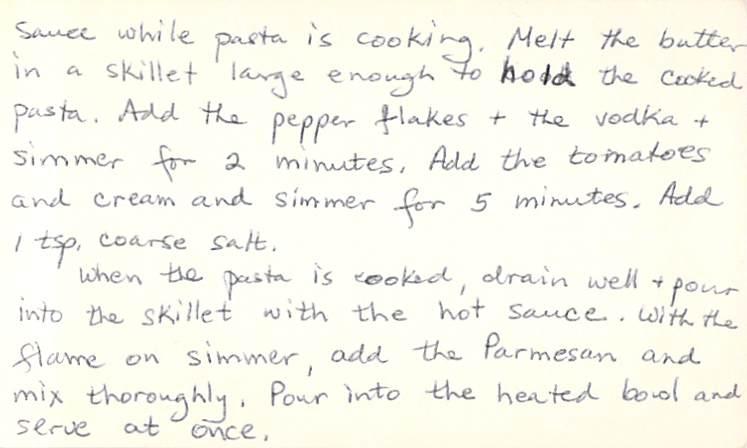 Sauce while pasta is cooking. Melt the butter
in a skillet large enough to hold the cooked
pasta. Add the pepper flakes + the vodka +
simmer for 2 minutes. Add the tomatoes
and cream and simmer for 5 minutes. Add
1 tsp. coarse salt.
When the pasta is cooked, drain well + pour
into the skillet with the hot sauce. With the
flame on simmer, add the Parmesan and
mix thoroughly. Pour into the heated bowl and
serve at once.